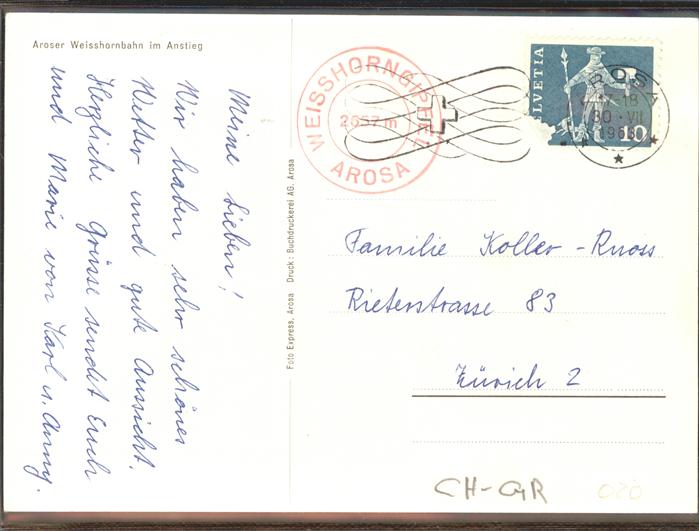 Aroser Weisshornbahn im Anstieg
Meine Lieben!
Wir haben sehr schönes
Wetter und gute Aussicht.
Herzliche Grüsse sendet Euch
und Marie von Karl u. Anny.
Foto Express, Arosa Druck: Buchdruckerei AG. Arosa
WEISSHORNGIPFEL
2657 m
AROSA
HELVETIA
AROSA
17-18
30.VII
10
Familie Koller-Knoss
Rieterstrasse 83
Zürich 2
CH-GR
020